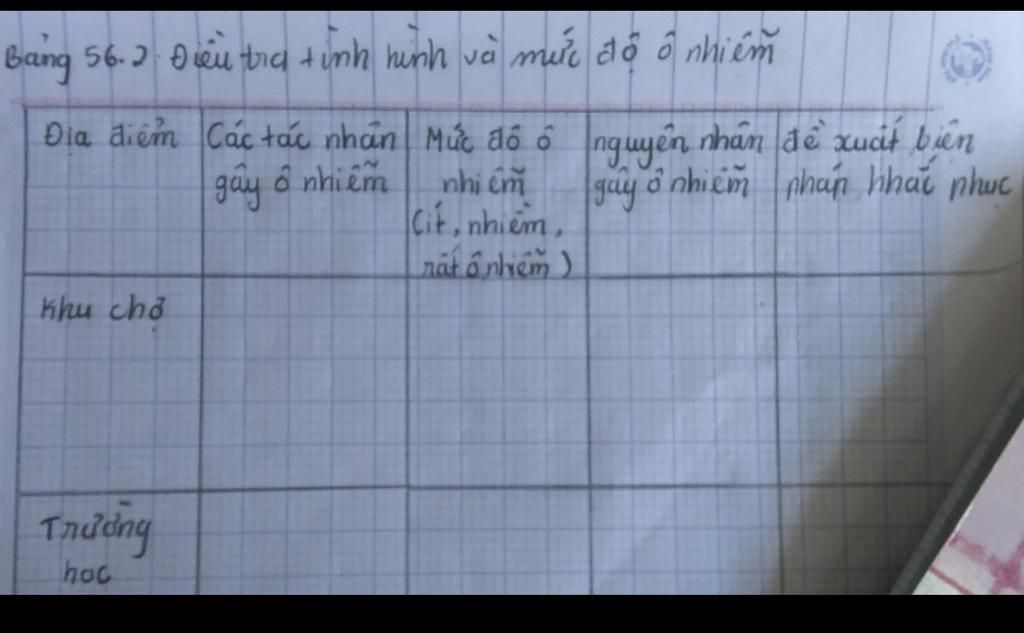 Bảng 56.2. Điều tra tình hình và mức độ ô nhiễm
Địa điểm
Các tác nhân
gây ô nhiễm
Mức độ ô
nhiễm
(ít, nhiễm,
rất ô nhiễm)
nguyên nhân
gây ô nhiễm
đề xuất biện
pháp khắc phục
Khu chợ
Trường
học